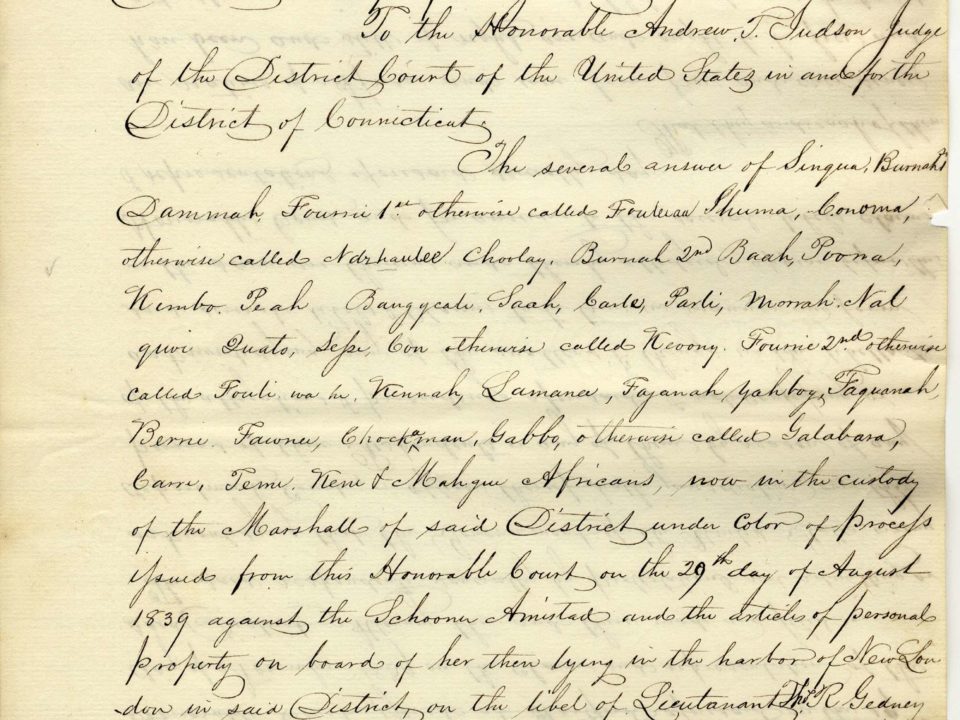 To the Honorable Andrew. T. Judson Judge
of the District Court of the United States in and for the
District of Connecticut.
The several answer of Singua, Burnah 1st
Dammah, Fourrie 1st otherwise called Shuma, Conoma,
otherwise called Ndzhaulee Choolay, Burnah 2nd Baah, Poona,
Kimbo. Peah Baugycah, Saah, Carle, Parli, Morrah. Nat
quoi Quato, Sesse, Con otherwise called Kevony. Fourrie 2nd otherwise
called Fouli wa hi. Kennah, Lamana, Fajanah, Yahboy, Faquanah,
Berrie. Fawnee, Chockaman, Gabbo, otherwise called Galabara,
Carre, Teme. Kene & Mahgue Africans, now in the custody
of the Marshall of said District under color of process
issued from this Honorable Court on the 29th day of August
1839 against the Schooner Amistad and the articles of personal
property on board of her then lying in the harbor of New Lon
don in said District, on the libel of Lieutenant Thos. R. Gedney